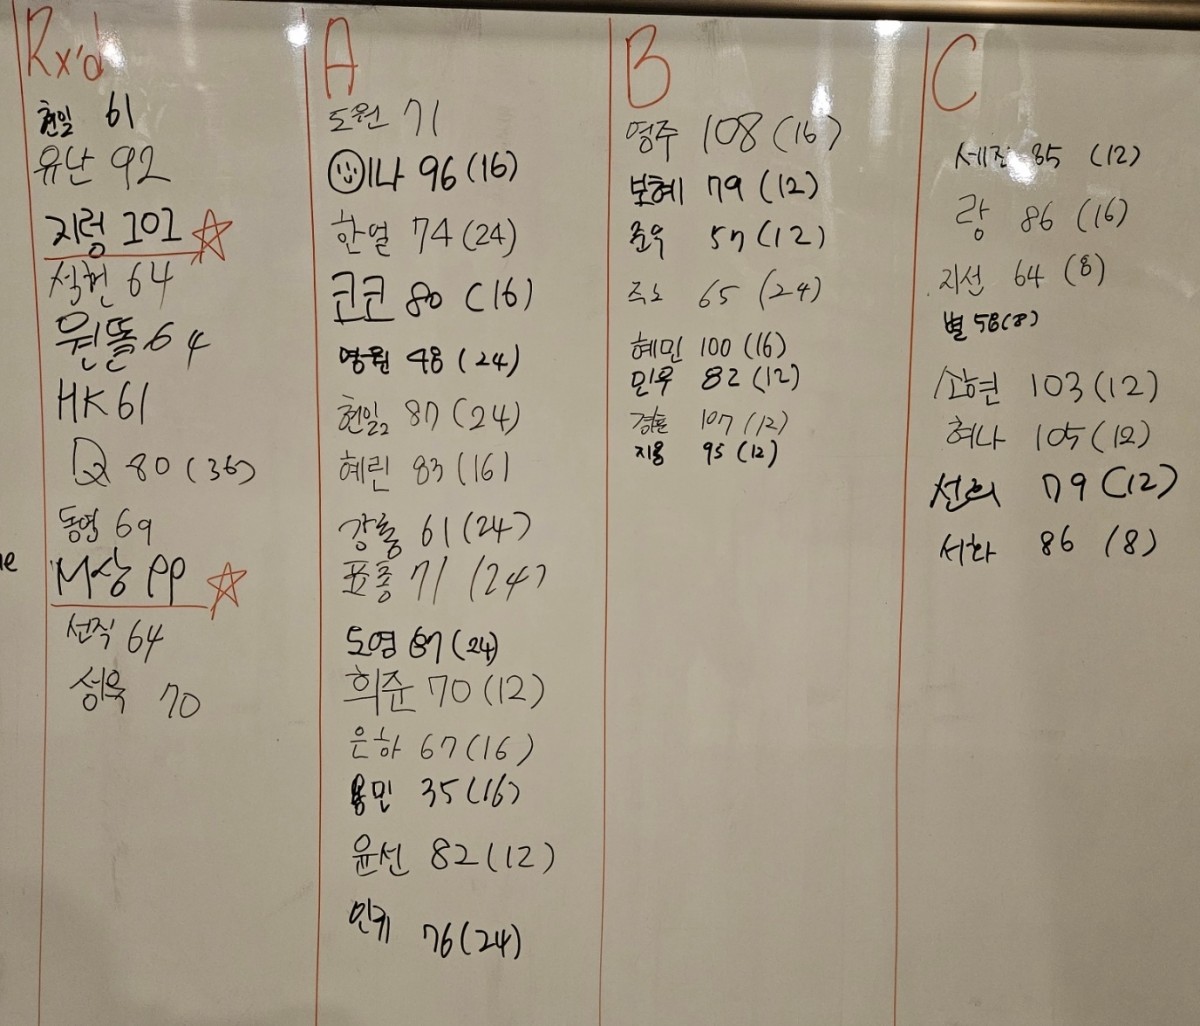 Rx'd
현일 61
유난 92
지렁 101
석현 64
원똘 64
HK 61
Q 80 (36)
동엽 69
M상 PP
선직 64
성욱 70
A
도원 71
이나 96 (16)
한얼 74 (24)
코코 80 (16)
영원 48 (24)
현일2 87 (24)
혜린 83 (16)
강룡 61 (24)
표종 71 (24)
도영 67 (24)
희준 70 (12)
은하 67 (16)
용민 35 (16)
윤선 82 (12)
민키 76 (24)
B
영주 108 (16)
보혜 79 (12)
준우 57 (12)
주노 65 (24)
혜민 100 (16)
민우 82 (12)
경훈 107 (12)
지용 95 (12)
C
세진 85 (12)
랑 86 (16)
지선 64 (8)
별 58 (8)
소현 103 (12)
혀나 105 (12)
선희 79 (12)
서화 86 (8)